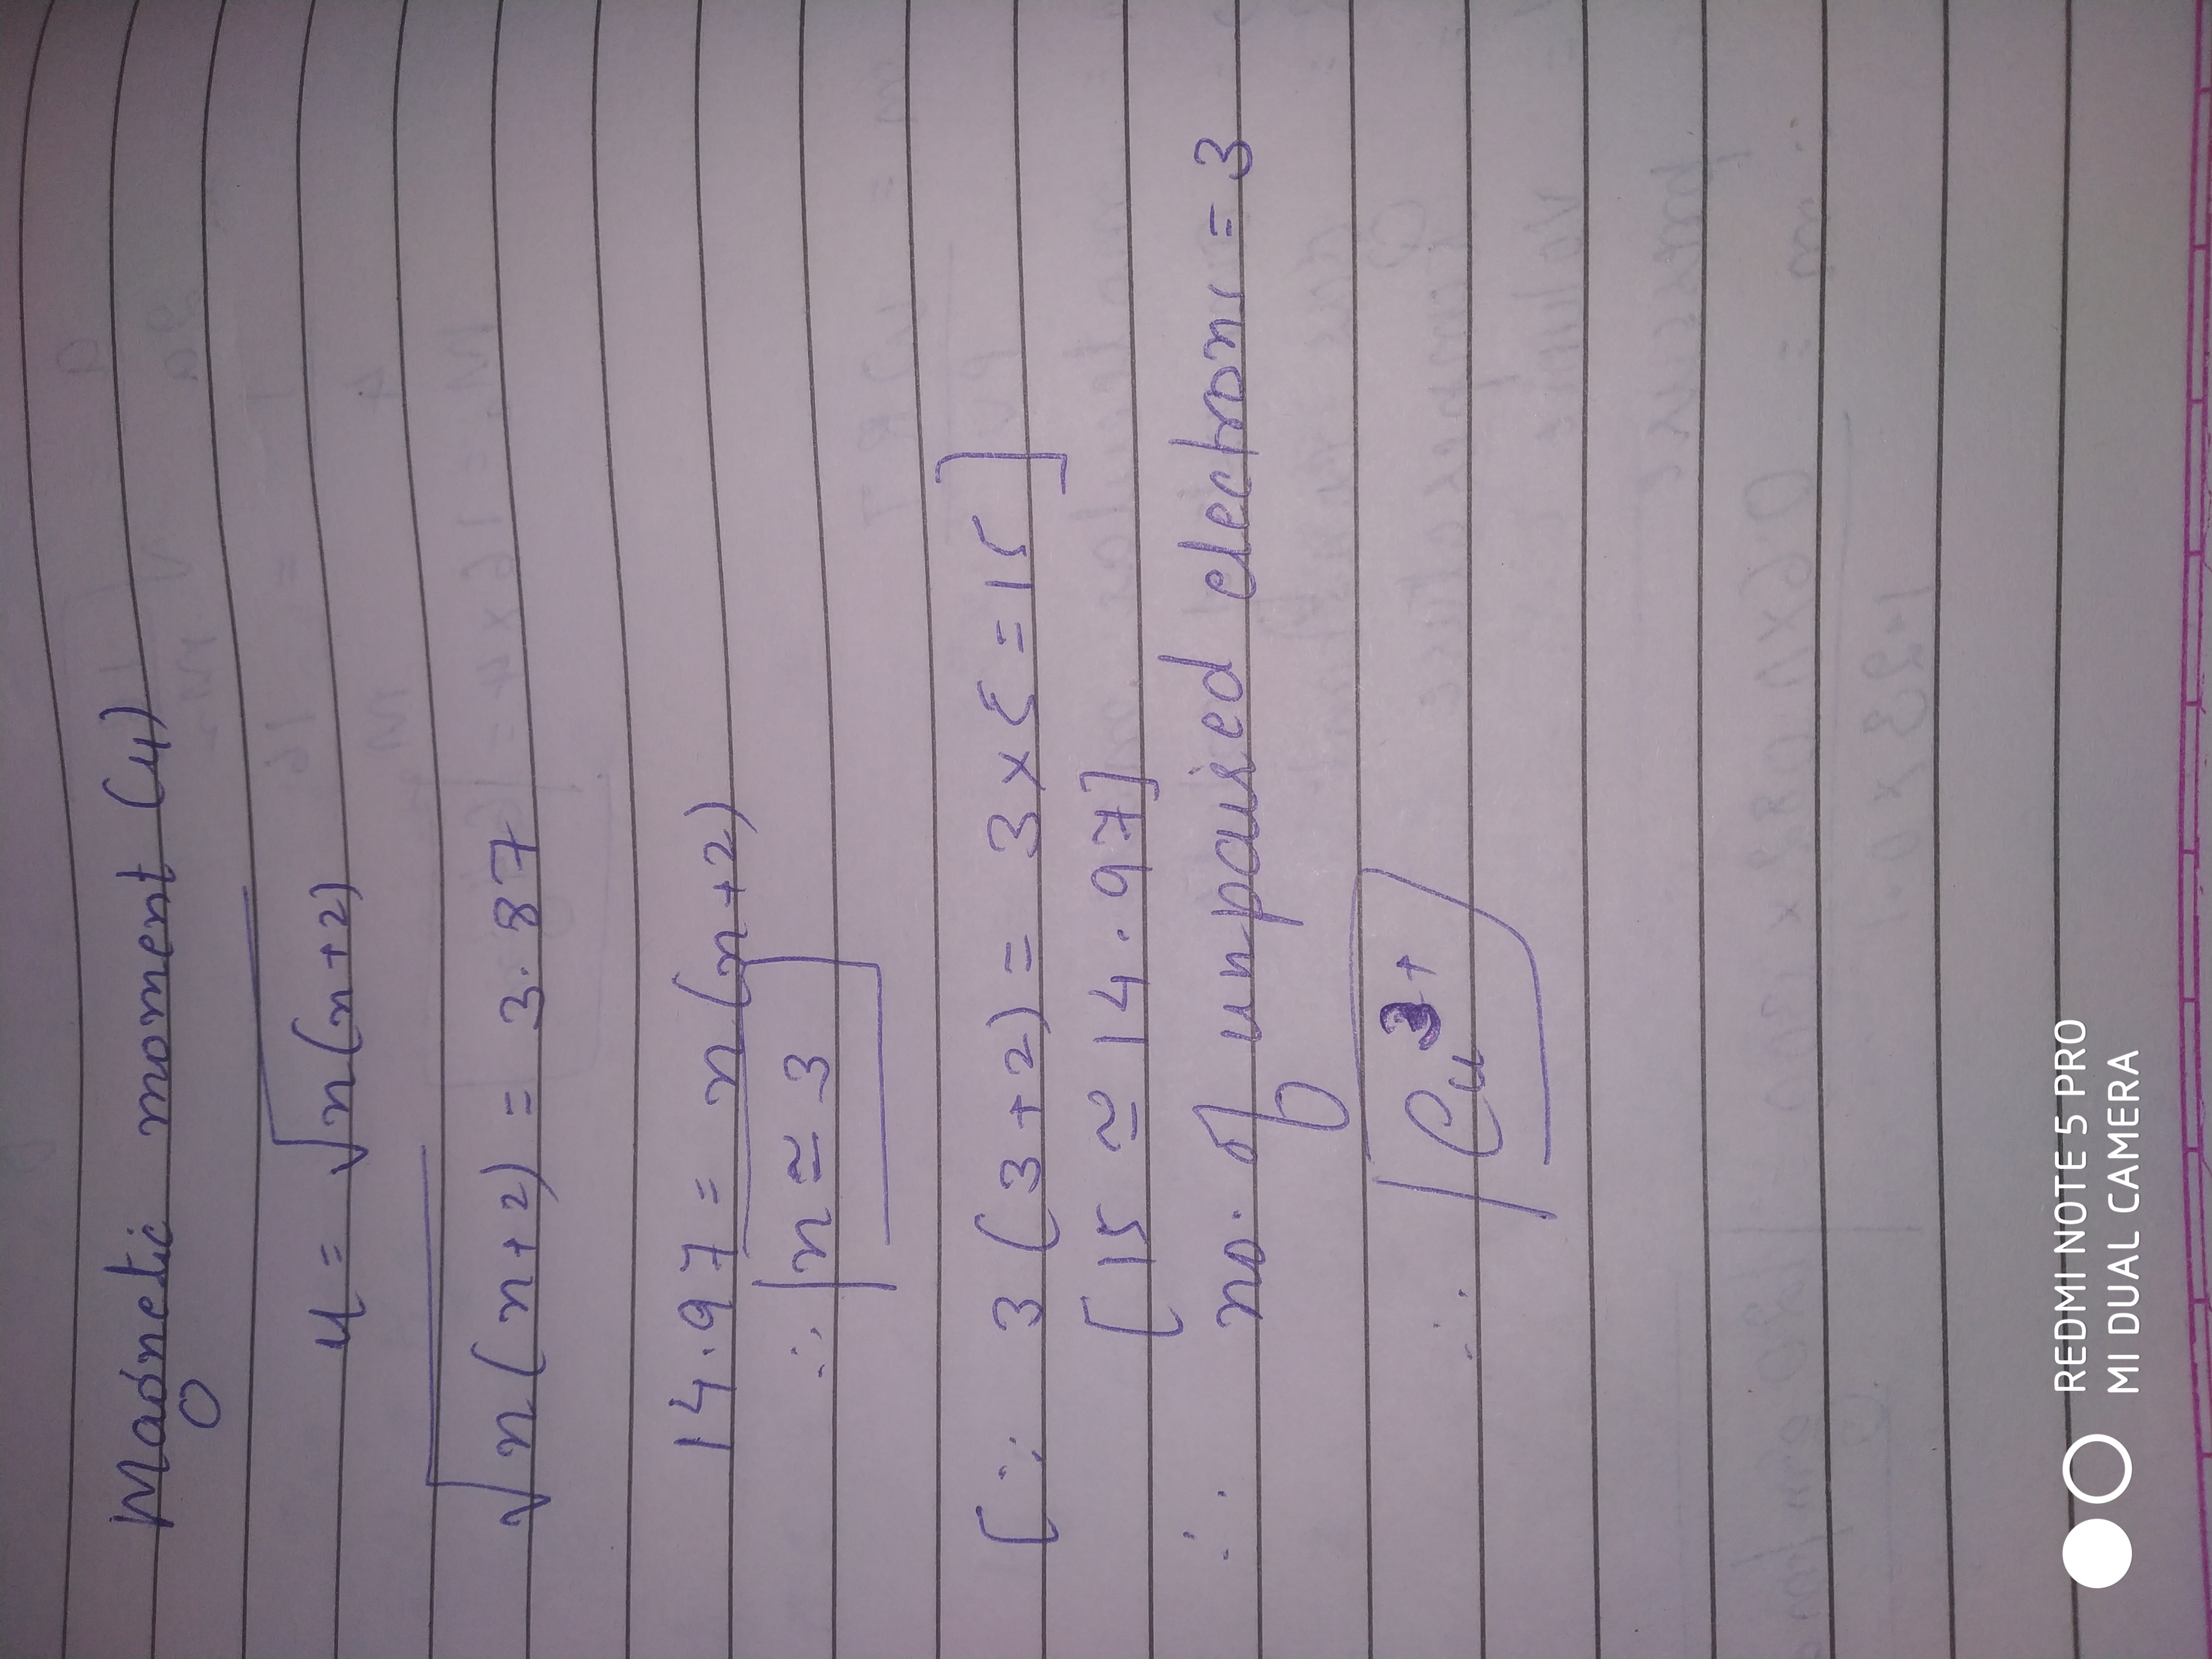 Magnetic moment (μ)
μ = √n(n+2)
√n(n+2) = 3.87
14.97 = n(n+2)
∴ n ≃ 3
[∵ 3(3+2) = 3×5 = 15]
[15 ≃ 14.97]
∴ no. of unpaired electrons = 3
∴ Cu³⁺
REDMI NOTE 5 PRO
MI DUAL CAMERA